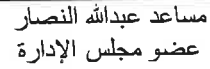 مساعد عبدالله النصار
عضو مجلس الإدارة